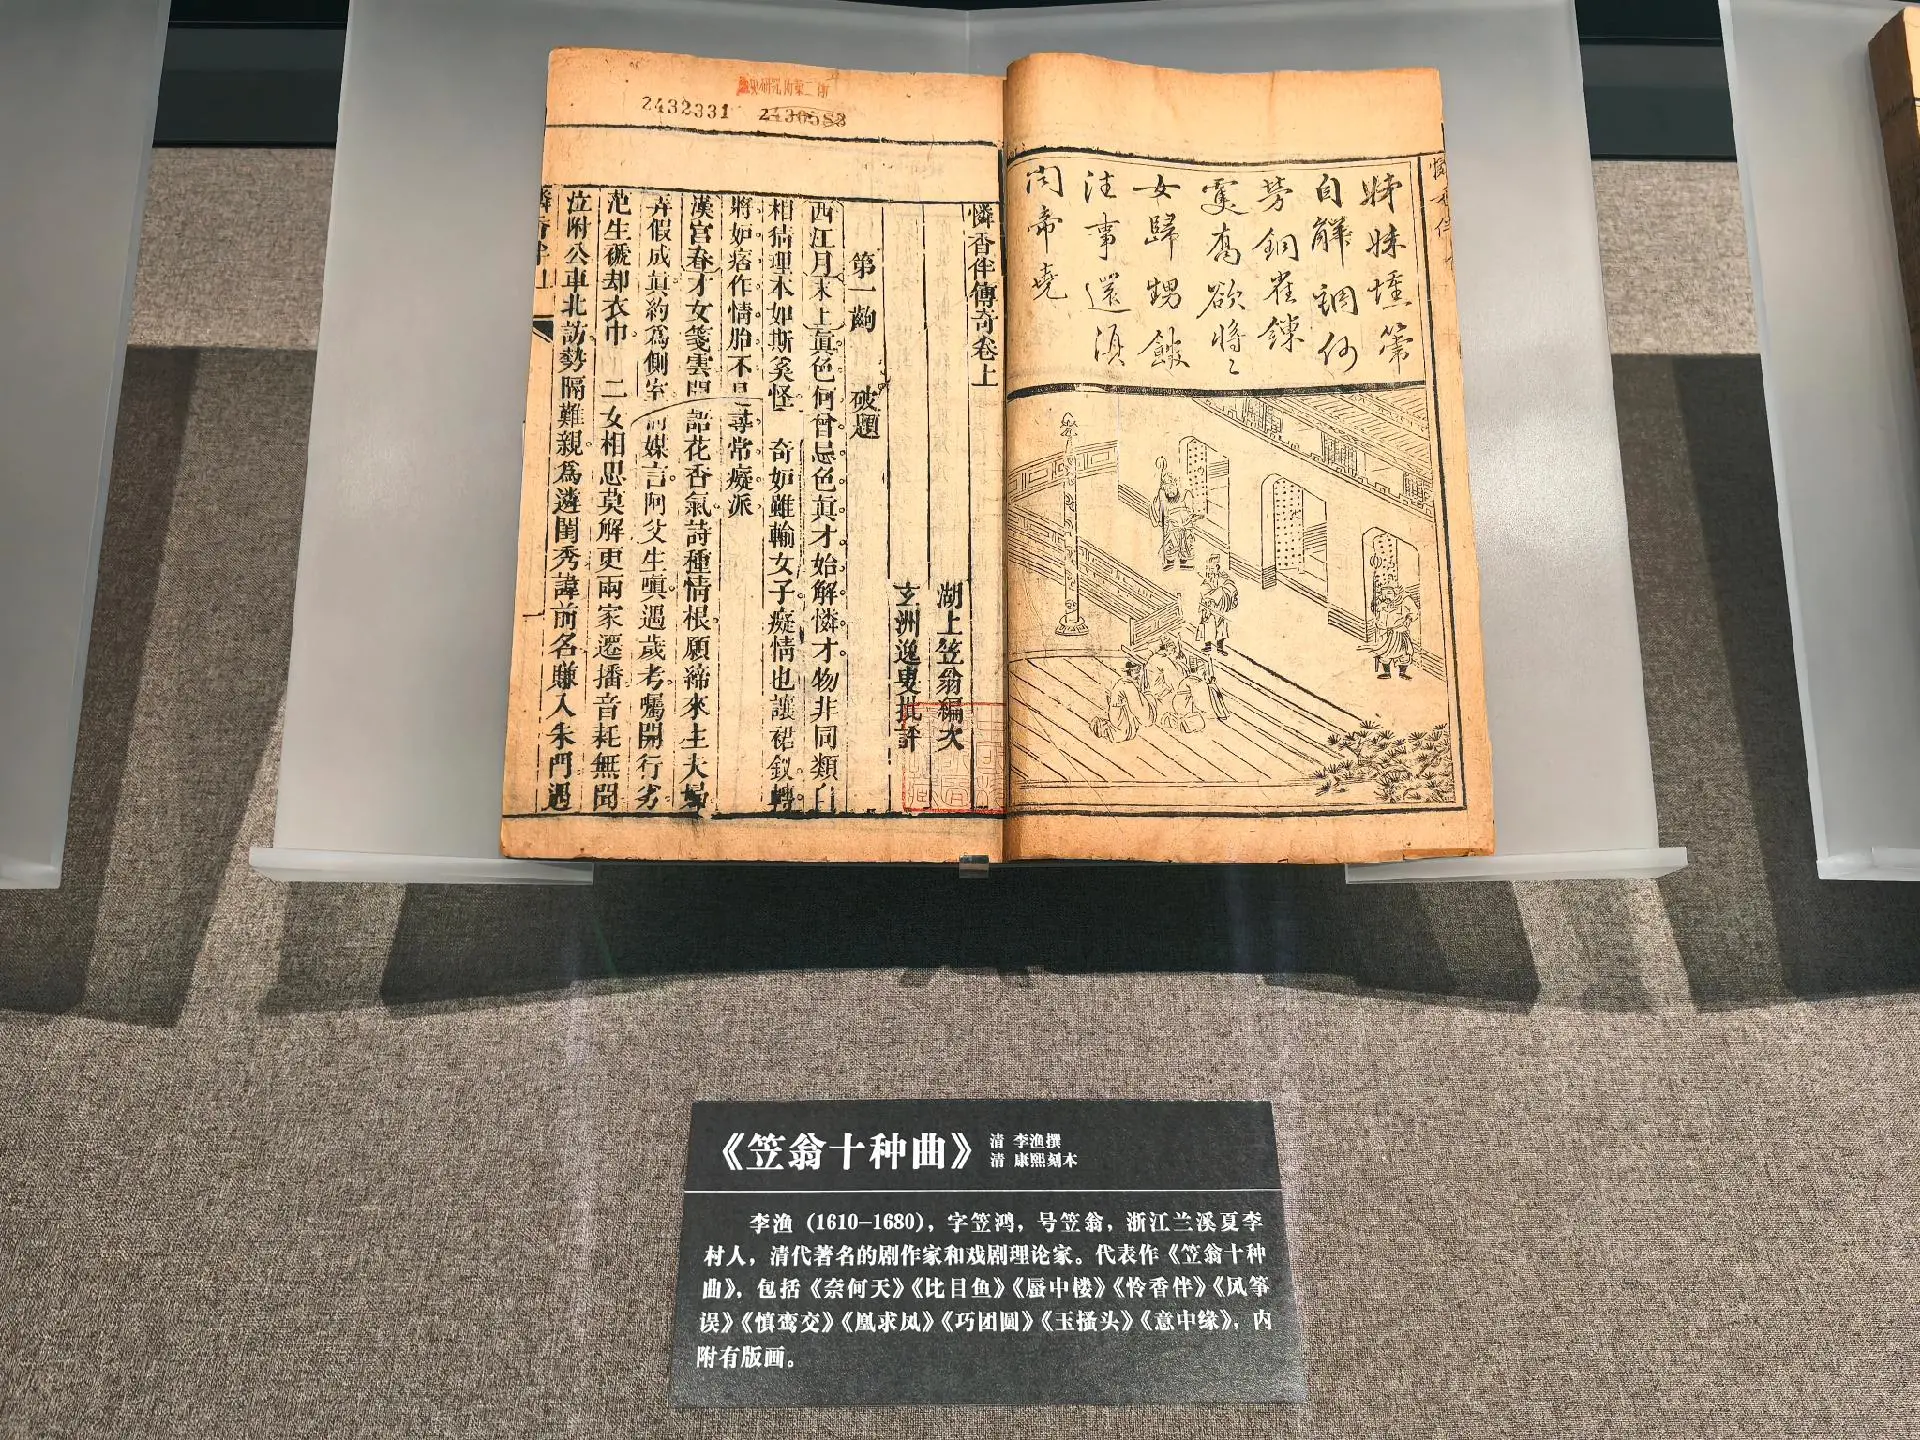 2432331 2430583
姊妹
自解
女歸甥館
往事還須
問帝堯
憐香伴傳奇卷上
湖上笠翁編次
玄洲逸叟批評
第一齣 破題
西江月末上眞色何曾忌色眞才始解憐才物非同類自
相猜理本如斯奚怪 奇妒雖輸女子癡情也讓裙釵轉
將妒痞作情胎不是尋常癡派
漢宮春才女箋雲閒語花香氣詩種情根願諦來生夫婦
弄假成眞約爲側室 媒言阿父生嗔遇歲考囑開行劣
范生褫却衣巾 二女相思莫解更兩家遷播音耗無聞
泣附公車北訪勢隔難親爲遴閨秀諱前名賺入朱門過
《笠翁十种曲》
清 李渔撰
清 康熙刻本
李渔（1610—1680），字笠鸿，号笠翁，浙江兰溪夏李
村人，清代著名的剧作家和戏剧理论家。代表作《笠翁十种
曲》，包括《奈何天》《比目鱼》《蜃中楼》《怜香伴》《风筝
误》《慎鸾交》《凰求凤》《巧团圆》《玉搔头》《意中缘》，内
附有版画。